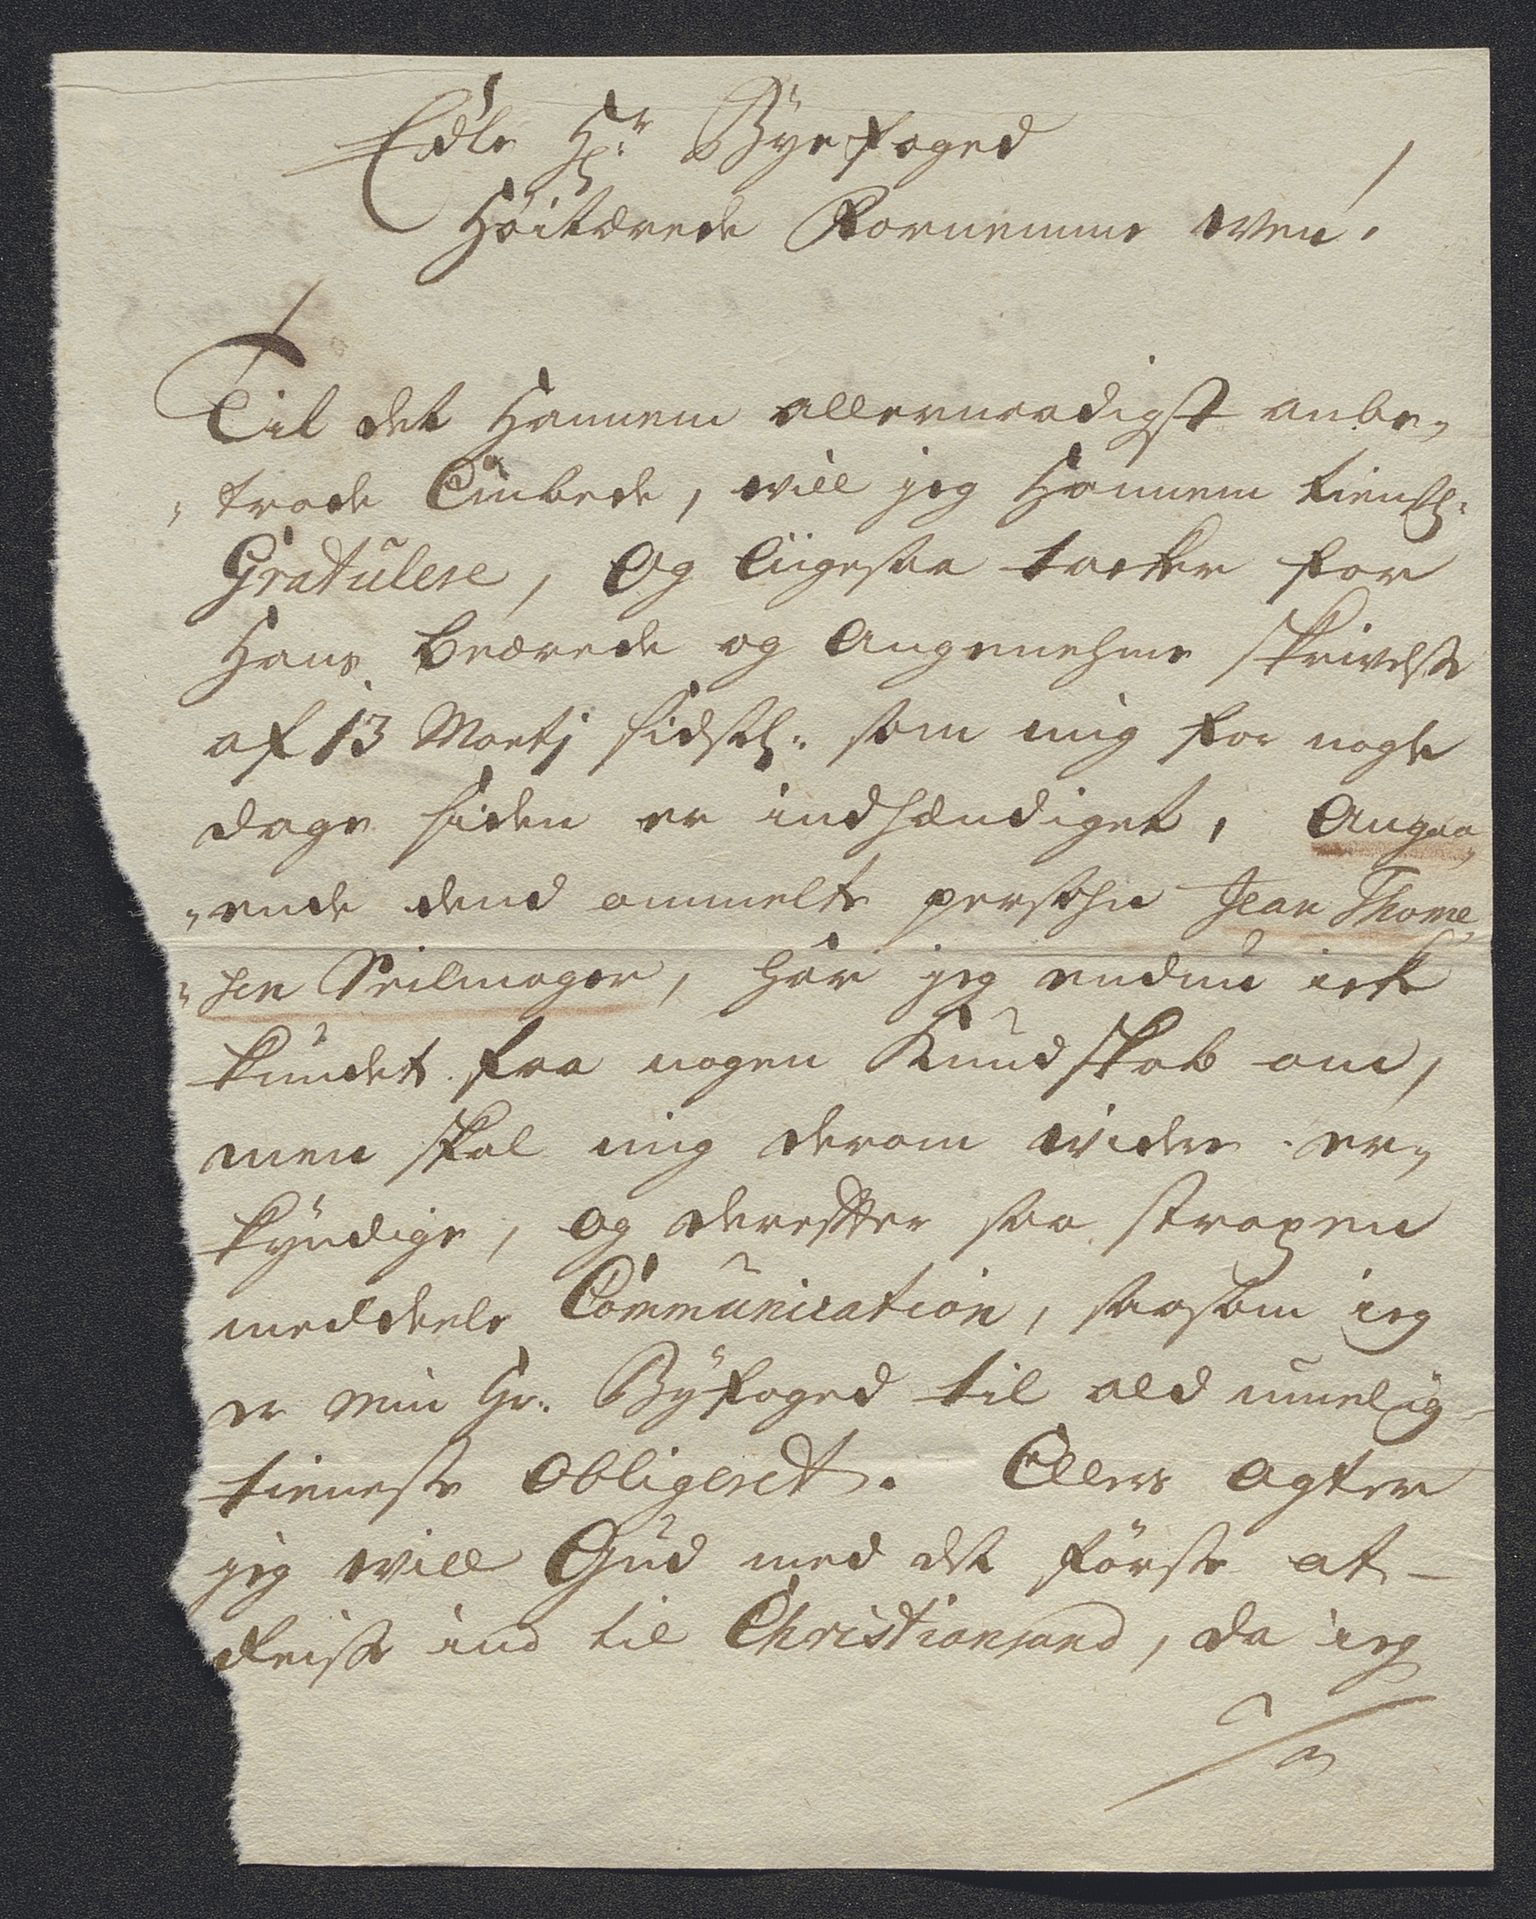 Edle Hr. Byefoged
Høitærede Fornemme Ven!
Til det Hannem allernaadigst anbe-
trode Embede, vill jeg Hannem tienstl:
Gratulere, Og liigesaa tacker for
Hans beærede og Angenehme skrivelse
af 13 Martj sidstl: som mig for nogle
dage siden er indhændiget, Angaa-
ende dend ommelte persohn Jean Thome-
sen Seilmager, har jeg endnu icke
kundet faa nogen Kundskab om,
men skal mig derom videre er-
kyndige, og derefter saa straxen
meddeele Communication, saasom jeg
er min Hr. Byfoged til ald muelig
tieneste obligeret. Ellers agter
jeg vill Gud med det første at
reise ind til Christiansand, da jeg